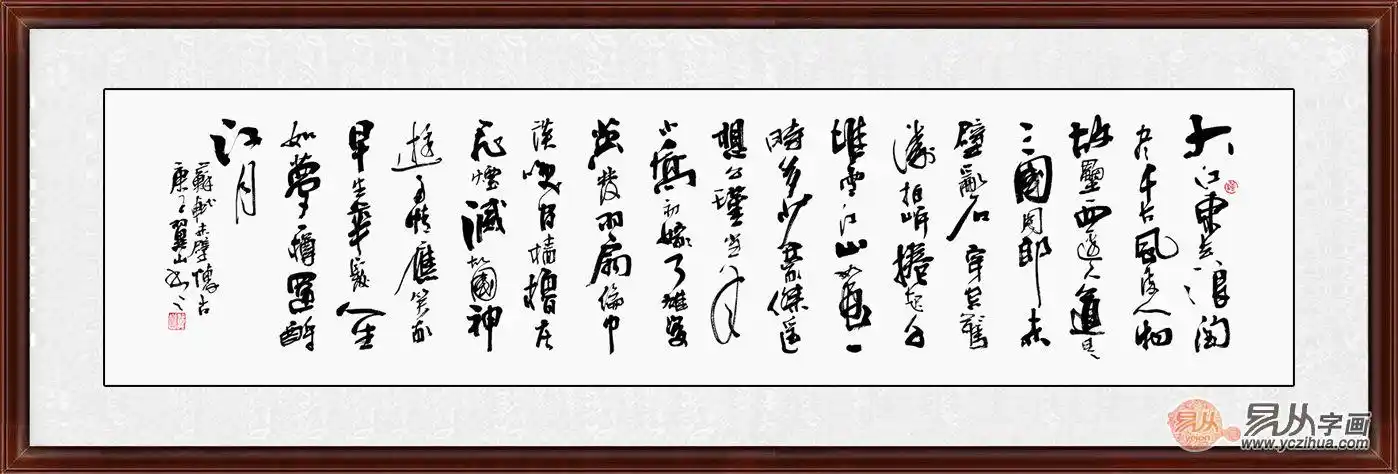 大江東去浪淘
尽千古風流人物
故壘西邊人道是
三國周郎赤
壁亂石穿空驚
濤拍岸捲起千
堆雪江山如畫一
時多少豪傑遥
想公瑾當年
小喬初嫁了雄姿
英發羽扇綸巾
談笑間檣櫓灰
飛煙滅故國神
遊多情應笑我
早生華髮人生
如夢一樽還酹
江月
蘇軾赤壁懷古
庚子翼山書
易从
易从字画
www.yczihua.com